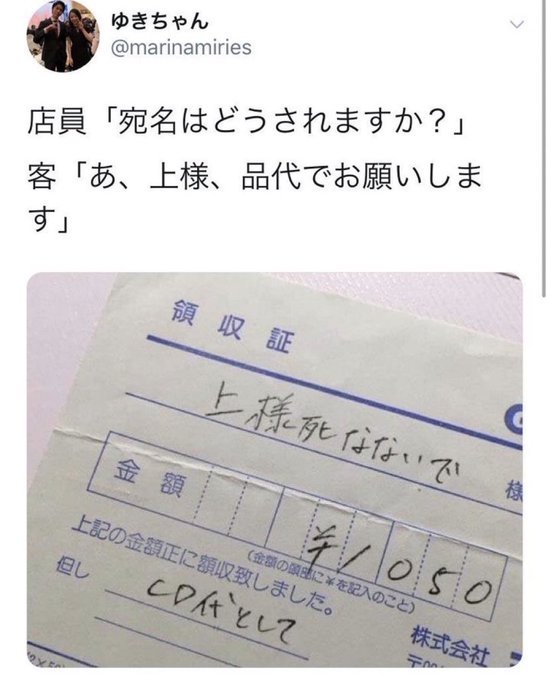 ゆきちゃん
@marinamiries
店員「宛名はどうされますか？」
客「あ、上様、品代でお願いしま
す」
領収証
上様死なないで
様
金額
¥1050
(金額の頭部に¥を記入のこと)
上記の金額正に領収致しました。
但し
CD代として
株式会社